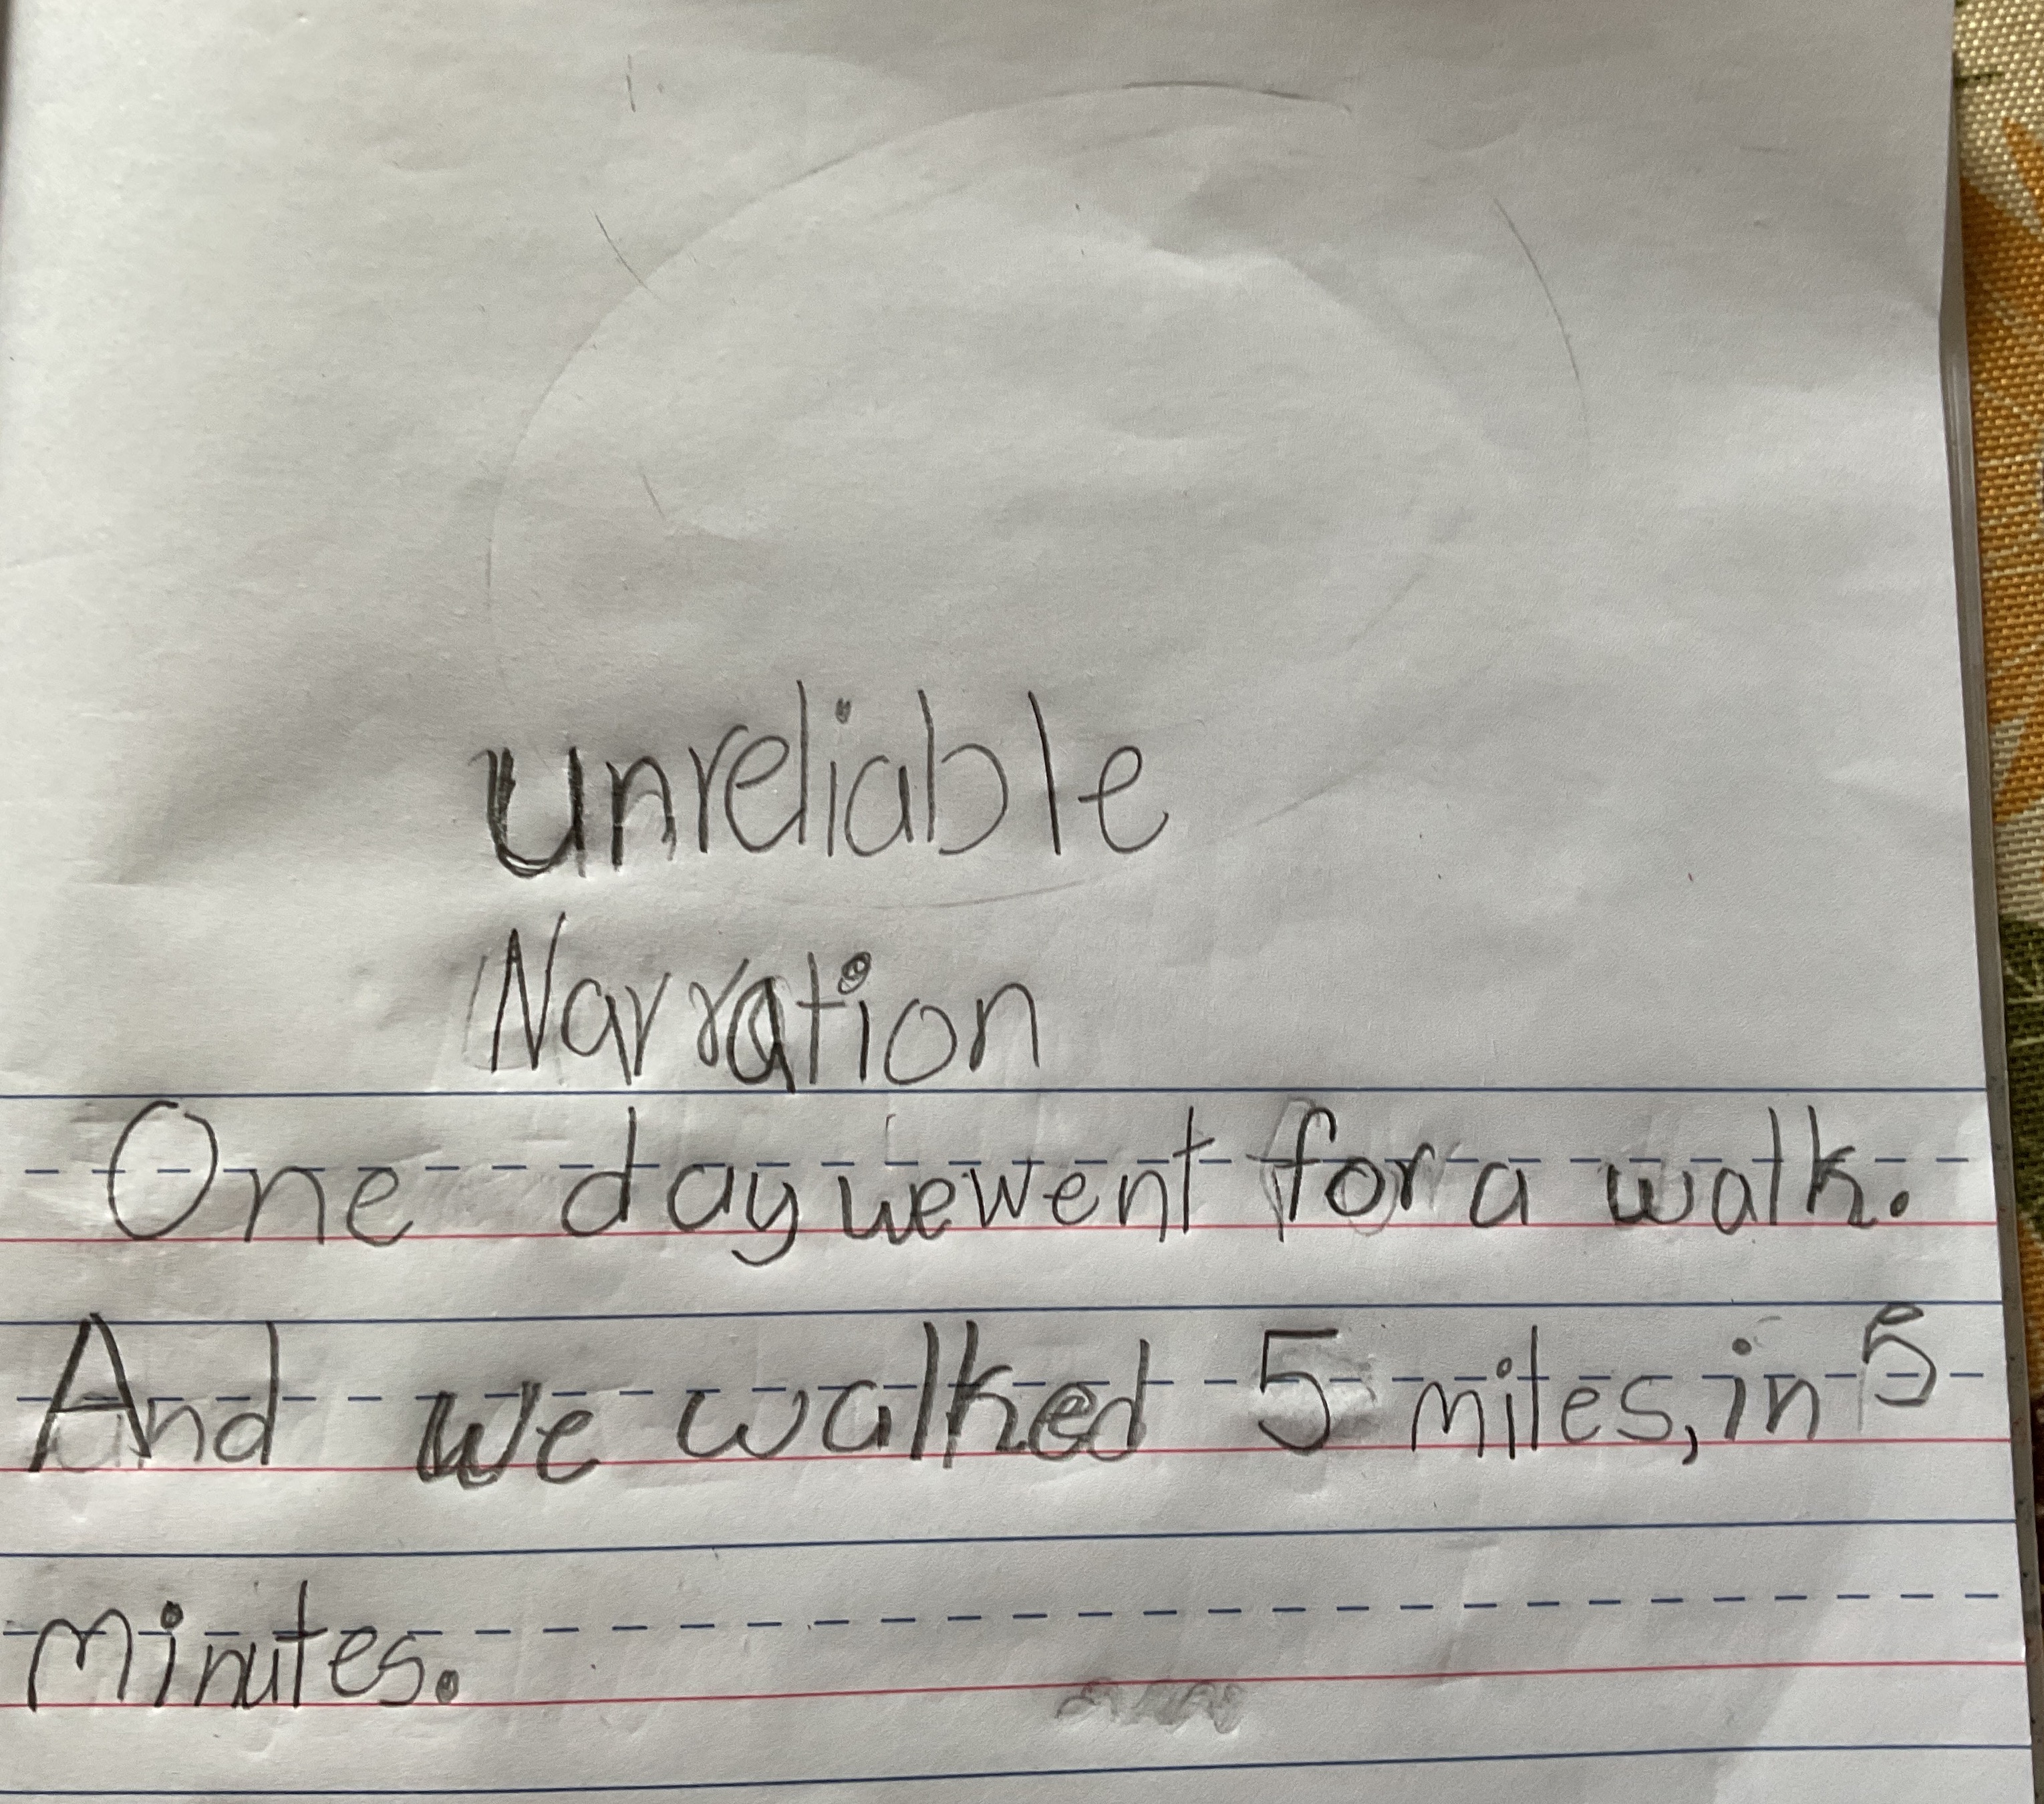 unreliable
Narration
One day we went for a walk.
And we walked 5 miles, in 5
minutes.